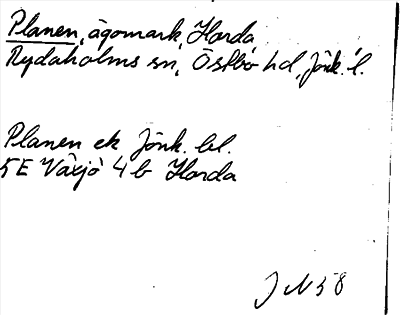 Planen, ägomark, Horda
Rydaholms sn, Östbo hd, Jönk. l.
Planen ek Jönk. bl.
5E Växjö 4b Horda
JN58